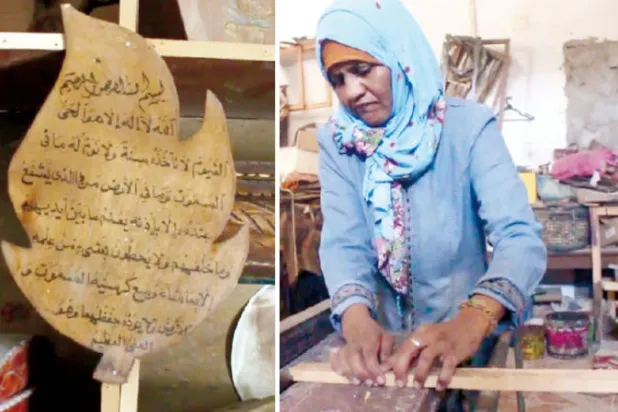 بسم الله الرحمن الرحيم
الله لا اله إلا هو الحي
القيوم لا تأخذه سنة ولا نوم له ما في
السموت وما في الأرض من ذا الذى يشفع
عنده إلا بإذنه يعلم ما بين أيديهم
وما خلفهم ولا يحيطون بشىء من علمه
إلا بما شاء وسع كرسيه السموت و
الأرض ولا يؤده حفظهما وهو
العلى العظيم